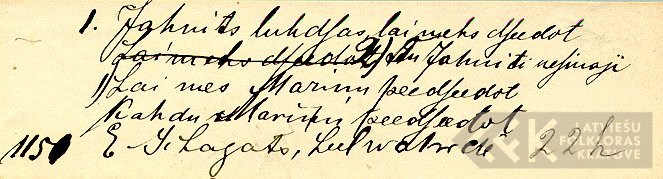 1. Jahnits luhdsas lai mehs dseedot
Lai mehs dseedot 2) Jahniti nesinaji
1) Lai mes Mariņu peedseedot
Kahdu Mariņu peedseedot
1150 E. Slagats, Lubwalwde 22h
LATVIEŠU
FOLKLORAS
KRĀTUVE